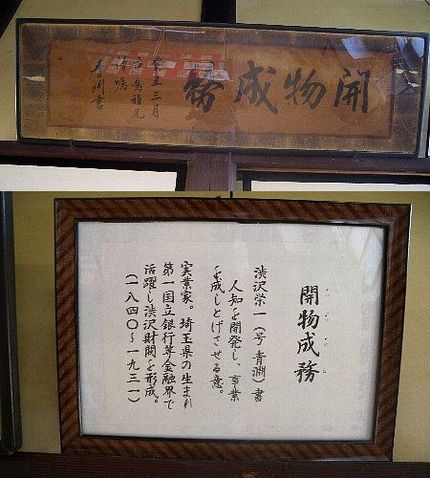 開物成務
癸丑三月
青淵書
開物成務
渋沢栄一（号 青淵）書
人知を開発し、事業
を成しとげさせる意。
実業家。埼玉県の生まれ
第一国立銀行等金融界で
活躍し渋沢財閥を形成。
（一八四〇～一九三一）